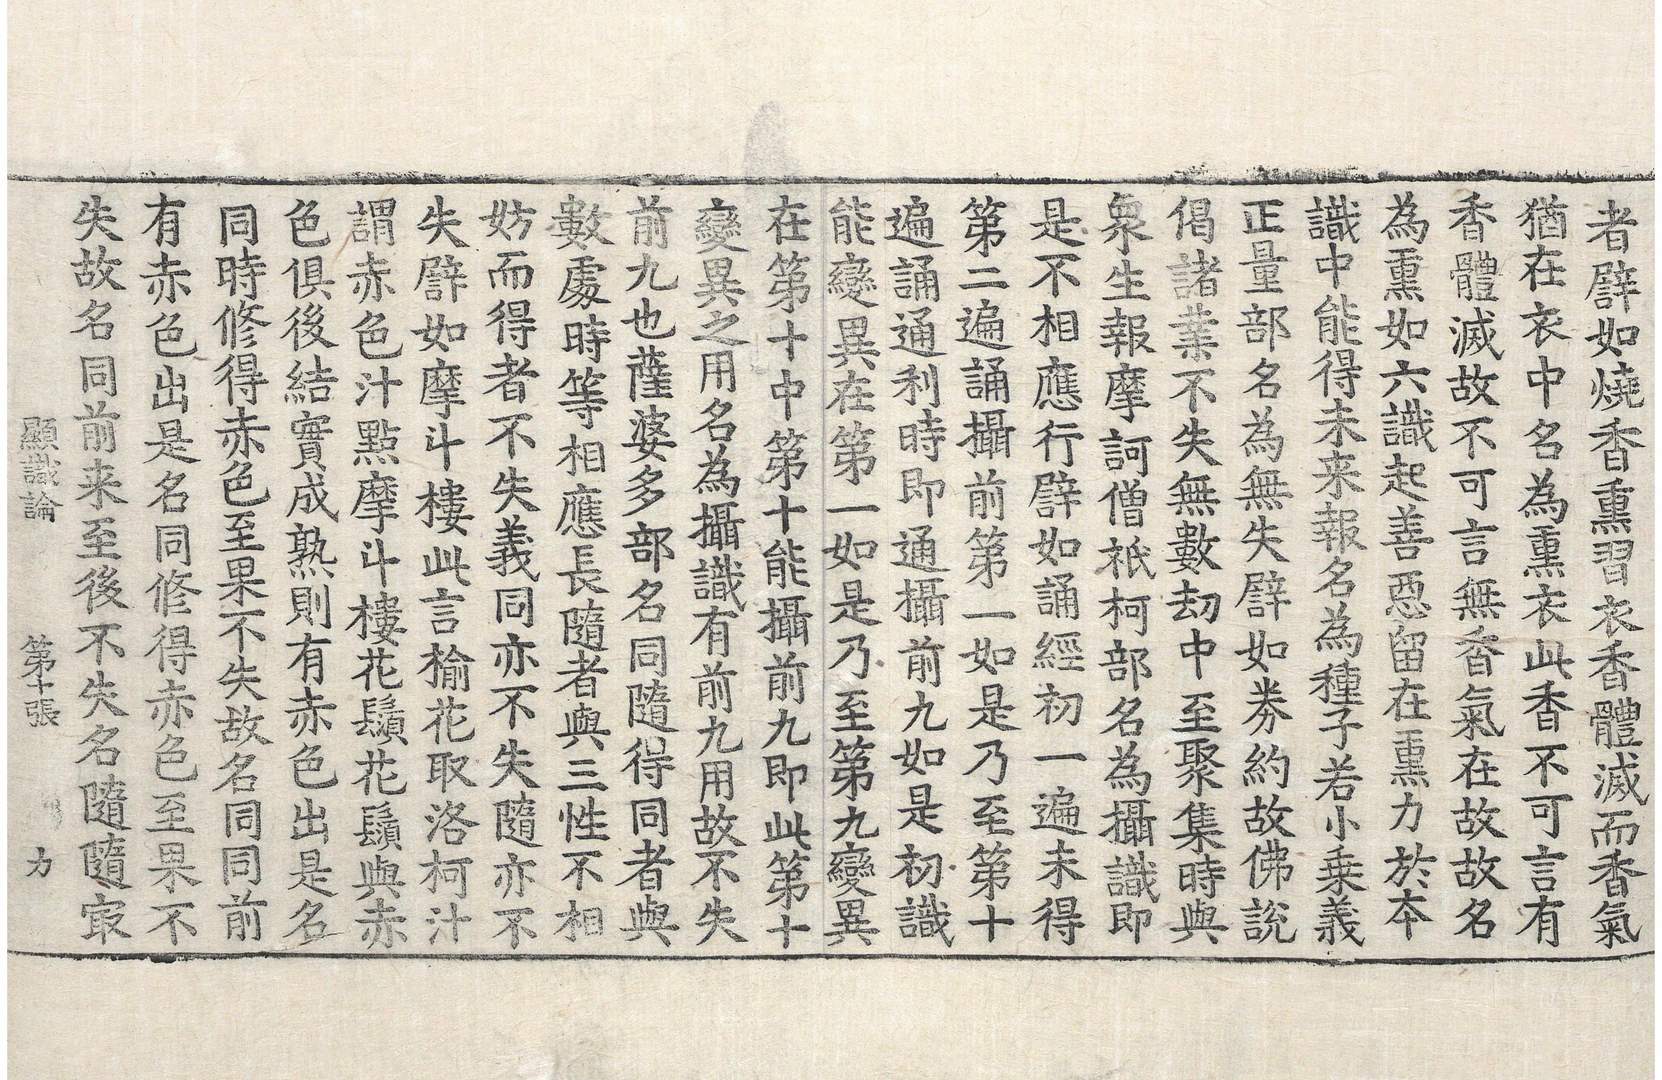 者譬如燒香熏習衣香體滅而香氣
猶在衣中名為熏衣此香不可言有
香體滅故不可言無香氣在故故名
為熏如六識起善惡留在熏力於本
識中能得未来報名為種子若小乗義
正量部名為無失譬如券約故佛說
偈諸業不失無數劫中至聚集時與
衆生報摩訶僧祇柯部名為攝識即
是不相應行譬如誦經初一遍未得
第二遍誦攝前第一如是乃至第十
遍誦通利時即通攝前九如是初識
能變異在第一如是乃至第九變異
在第十中第十能攝前九即此第十
變異之用名為攝識有前九用故不失
前九也薩婆多部名同隨得同者與
數處時等相應長隨者與三性不相
妨而得者不失義同亦不失隨亦不
失譬如摩斗樓此言榆花取洛柯汁
謂赤色汁點摩斗樓花鬚花鬚與赤
色俱後結實成熟則有赤色出是名
同時修得赤色至果不失故名同同前
有赤色出是名同修得赤色至果不
失故名同前来至後不失名隨隨㝡
顯識論 第十張 力